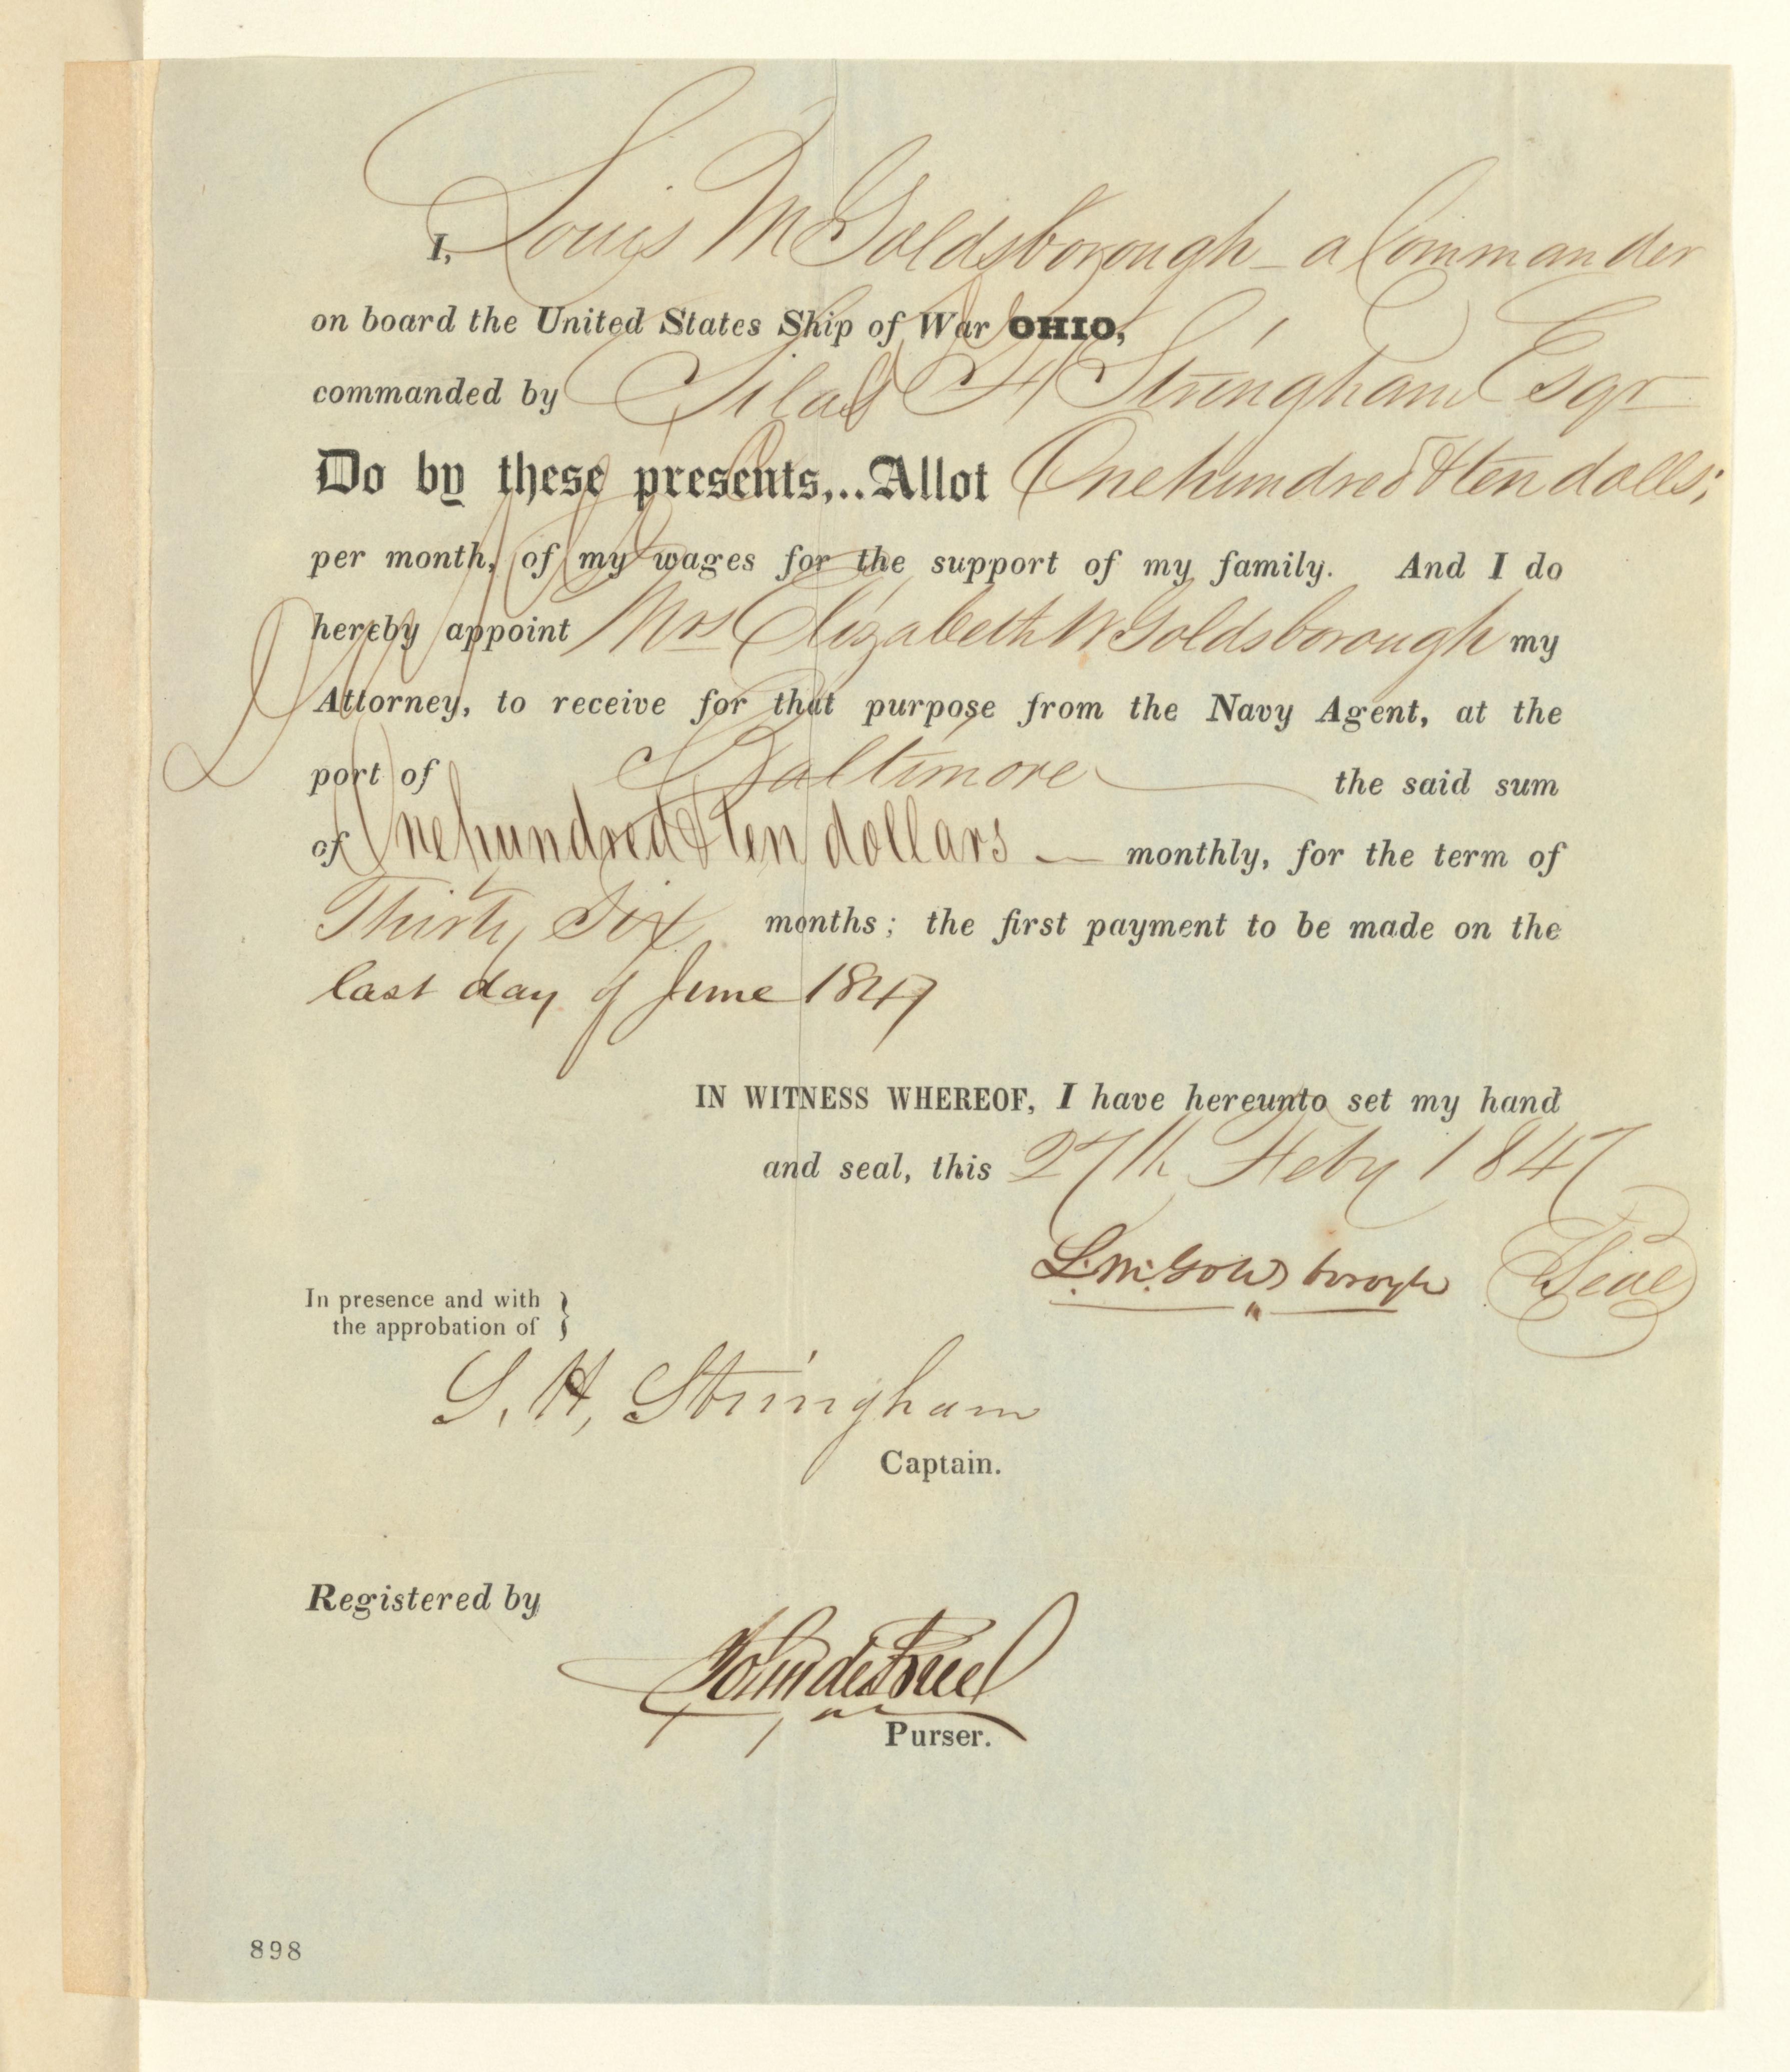 I, Louis M Goldsborough - a Commander
on board the United States Ship of War OHIO,
commanded by Silas H Stringham Esqr
Do by these presents,...Allot One hundred & ten dolls;
per month, of my wages for the support of my family. And I do
hereby appoint Mrs Elizabeth W Goldsborough my
Attorney, to receive for that purpose from the Navy Agent, at the
port of Baltimore the said sum
of One hundred & ten dollars — monthly, for the term of
Thirty Six months; the first payment to be made on the
last day of June 1847
IN WITNESS WHEREOF, I have hereunto set my hand
and seal, this 27th Feby 1847
L. M. Goldsborough Seal
In presence and with
the approbation of }
S. H. Stringham
Captain.
Registered by
John deBree
Purser.
898